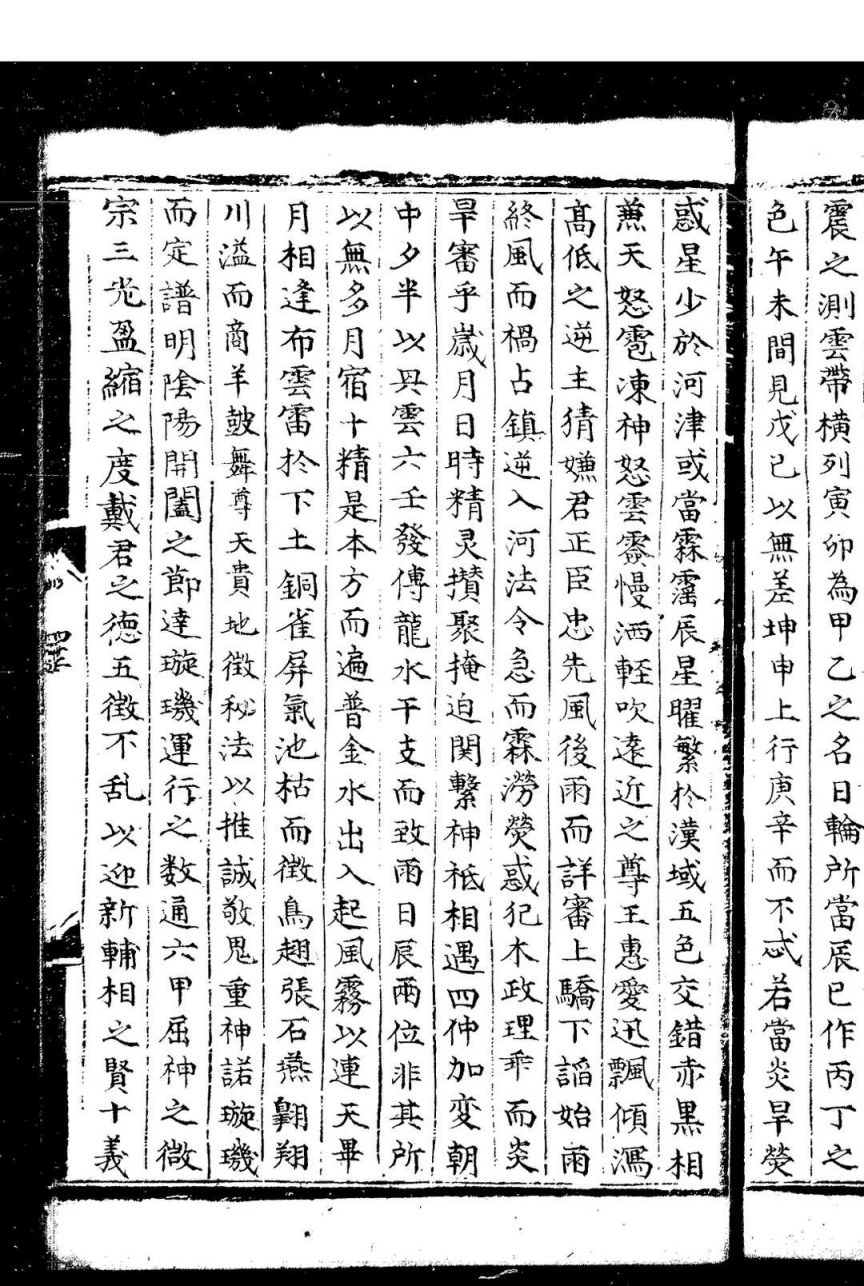 震之測雲帶橫列寅卯為甲乙之名日輪所當辰巳作丙丁之
色午未間見戊己以無差坤申上行庚辛而不忒若當炎旱熒
惑星少於河津或當霖霪辰星曜繁於漢域五色交錯赤黑相
蒹天怒雹凍神怒雲霧慢洒輕吹遠近之尊王惠愛迅飄傾瀉
髙低之逆主猜嫌君正臣忠先風後雨而詳審上驕下謟始雨
終風而禍占鎮逆入河法令急而霖澇熒惑犯木政理乖而炎
旱審乎嵗月日時精灵攅聚掩迫関繫神祗相遇四仲加变朝
中夕半以㒷雲六壬發傳龍水干支而致雨日辰兩位非其所
以無多月宿十精是本方而遍普金水出入起風霧以連天畢
月相逢布雲雷扵下土銅雀屏氣池枯而徴鳥趐張石燕翺翔
川溢而商羊皷舞尊天貴地徴秘法以推誠敬鬼重神諾璇璣
而定譜明陰陽開闔之節達璇璣運行之数通六甲屈神之微
宗三光盈縮之度戴君之德五徴不乱以迎新輔相之賢十義